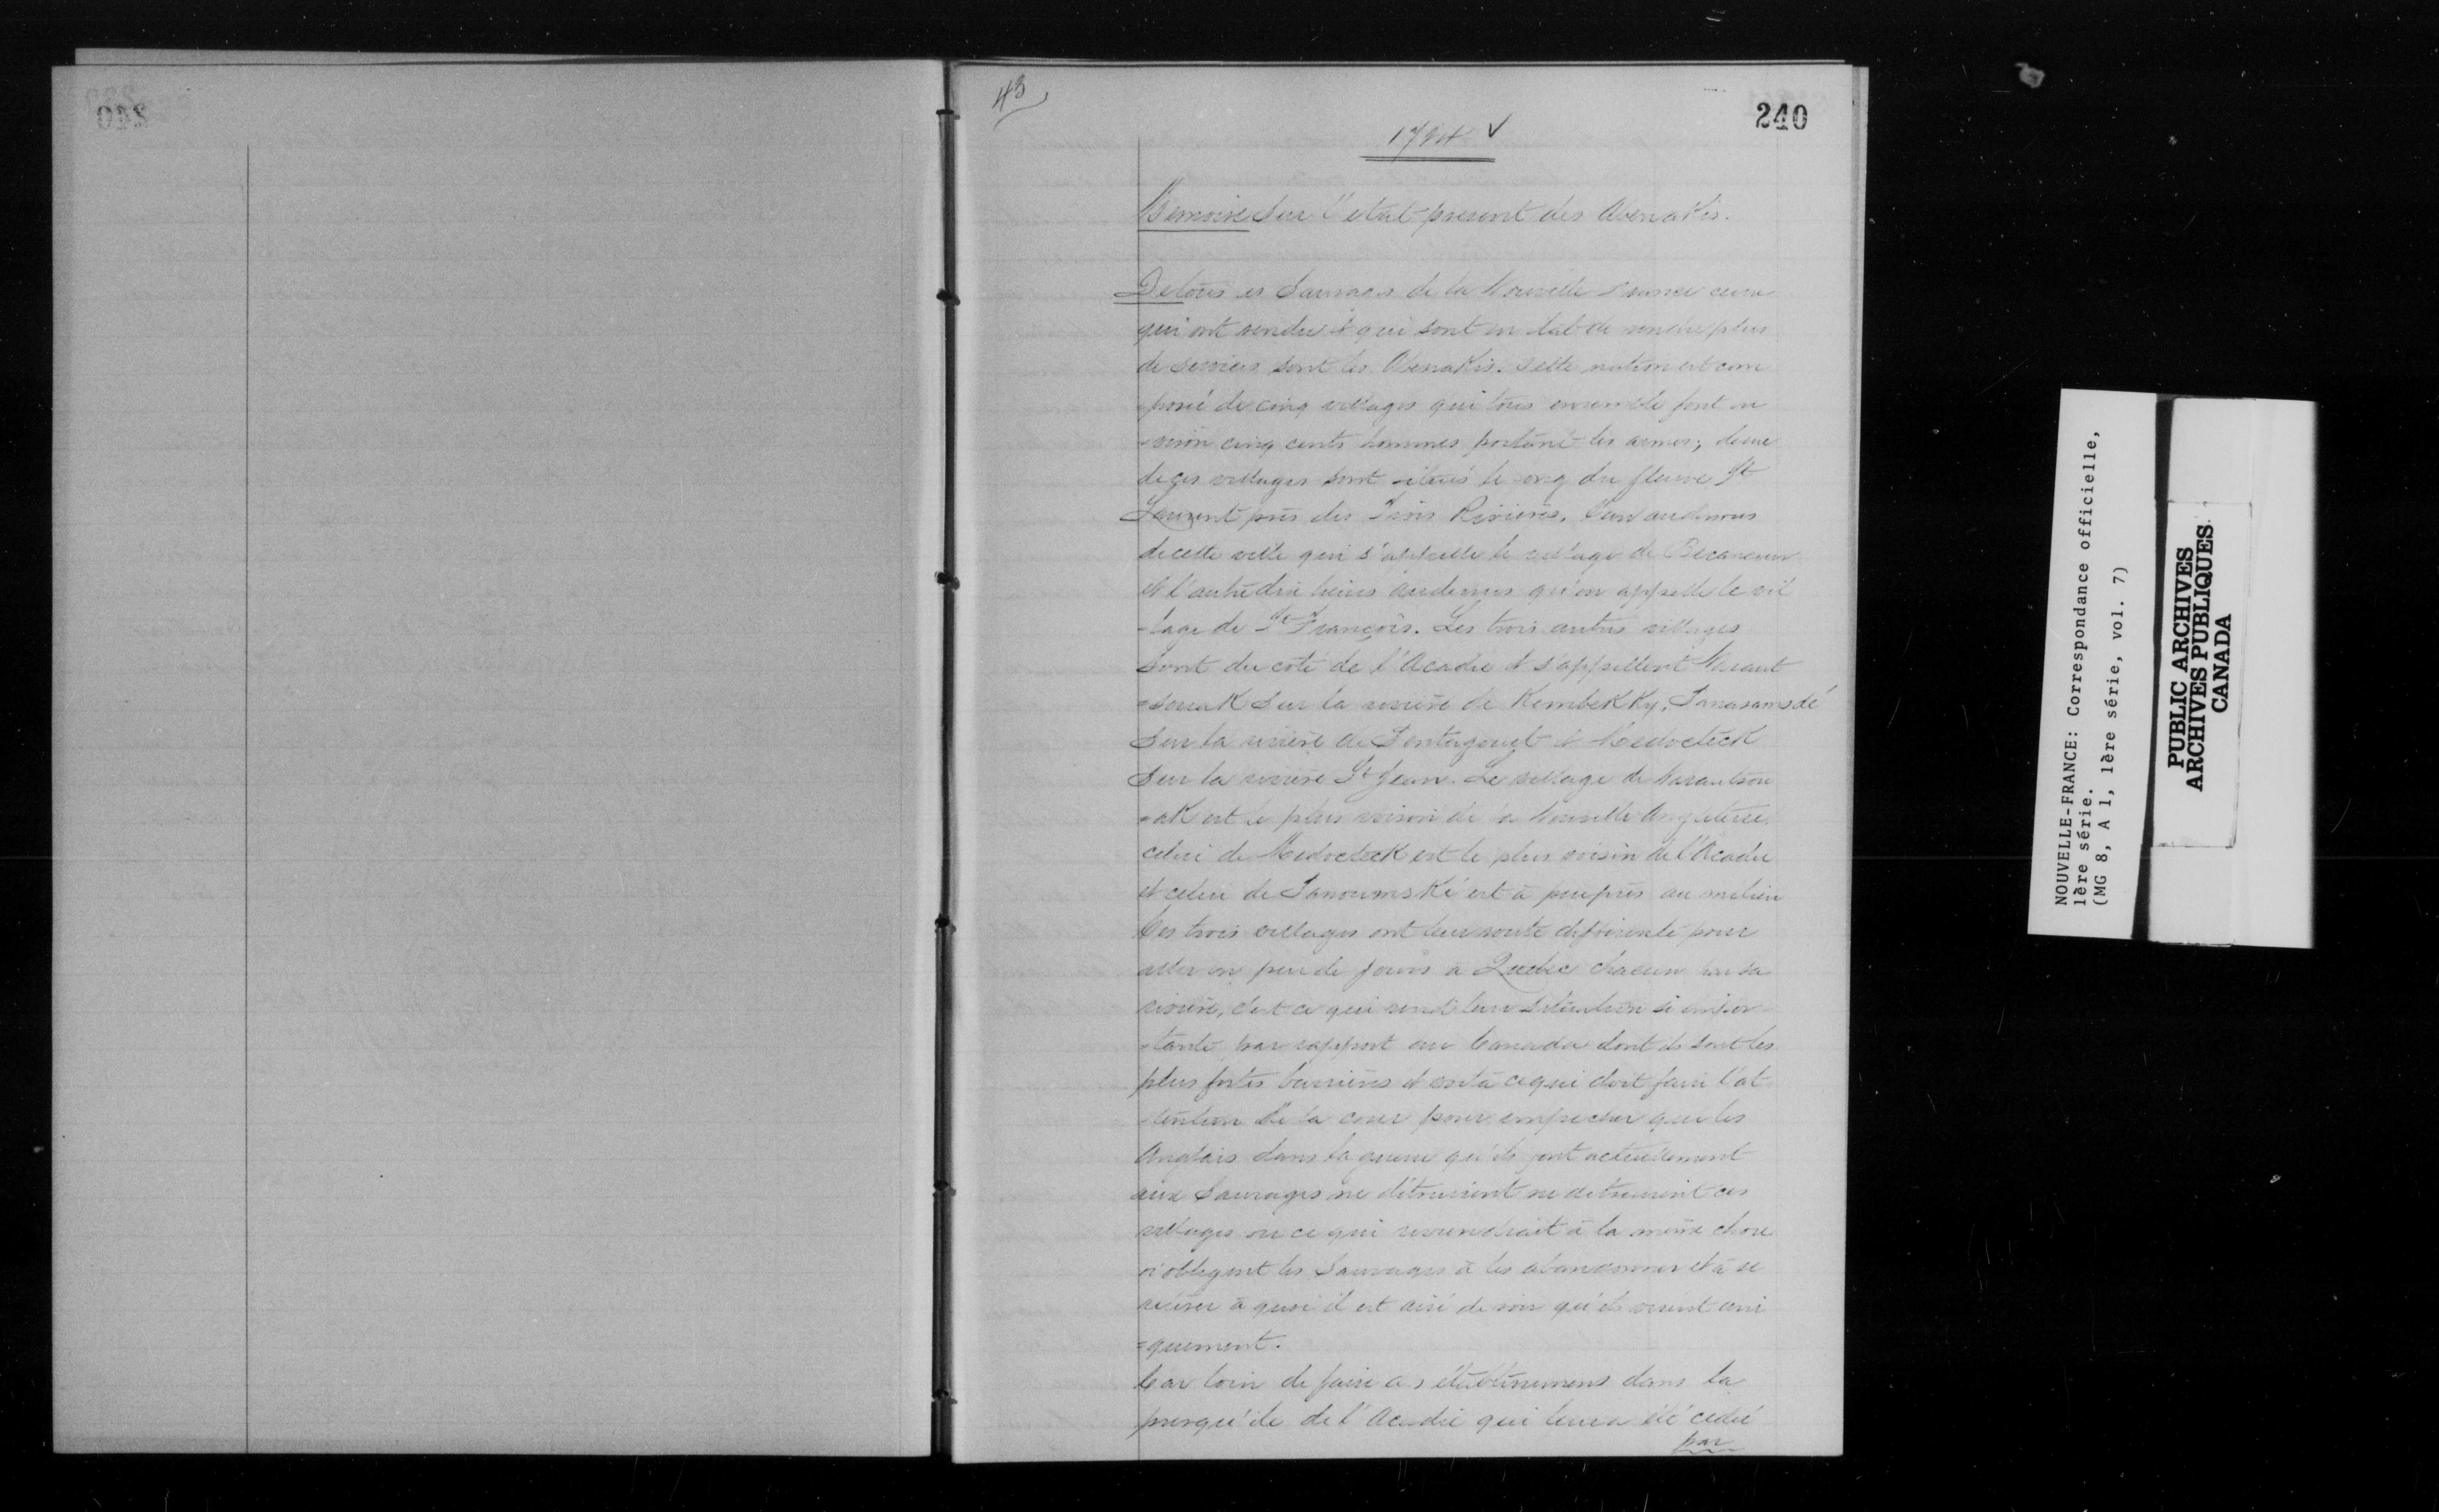 43
240
1724 ✓
Memoire sur l'etat present des Abenakis.
De tous les Sauvages de la Nouvelle France ceux
qui ont rendu & qui sont en etat de rendre plus
de services sont les Abenakis. Cette nation est com
-posée de cinq villages qui tous ensemble font en
-viron cinq cents hommes portant les armes; deux
de ces villages sont situés le long du fleuve St
Laurent près des Trois Rivières, l'un au dessous
de cette ville qui s'appelle le village de Becancour
et l'autre dix lieues au dessus qu'on appelle le vil
-lage de St François. Les trois autres villages
sont du coté de l'Acadie et s'appellent Naraut
=souak sur la rivière de Kembekky, Panasamsdé
sur la rivière de Pentagouet et Medocteck
sur la rivière St Jean. Le village de Narautsou
=ak est le plus voisin de la Nouvelle Angleterre,
celui de Medocteck est le plus voisin de l'Acadie
et celui de Panoumské est à peu près au milieu
Ces trois villages ont leur route différente pour
aller en peu de jours à Quebec chacun par sa
rivière, c'est ce qui rend leur situation si impor
-tante par rapport au Canada dont ils sont les
plus fortes barrières et c'est à ce qui doit faire l'at
-tention de la cour pour empecher que les
Anglais dans la guerre qu'ils font actuellement
aux Sauvages ne détruisent ne detruisent ces
villages ou ce qui reviendrait à la même chose
n'obligent les Sauvages à les abandonner et à se
retirer à quoi il est aisé de voir qu'ils visent uni
=quement.
Car loin de faire des établissemens dans la
presqu'ile de l'Acadie qui leur a été cedée
par
NOUVELLE-FRANCE: Correspondance officielle,
1ère série.
(MG 8, A 1, 1ère série, vol. 7)
PUBLIC ARCHIVES
ARCHIVES PUBLIQUES
CANADA